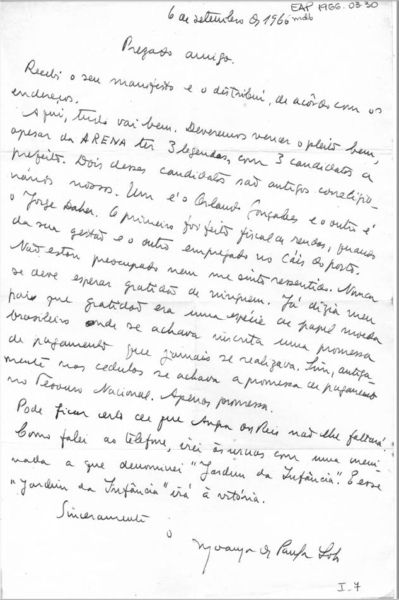 EAP 1966.03.30
6 de setembro de 1966 mdb
Prezado amigo.
Recebi o seu manifesto e o distribui, de acôrdo com os
endereços.
Aqui, tudo vai bem. Deveremos vencer o pleito bem,
apesar da ARENA ter 3 legendas, com 3 candidatos a
prefeito. Dois desses candidatos são antigos correligio-
nários nossos. Um é o Orlando Gonçalves e o outro é
o Jorge . O primeiro foi feito fiscal de rendas, quando
da sua gestão e o outro empregado no Cáis do porto.
Não estou preocupado nem me sinto ressentido. Nunca
se deve esperar gratidão de ninguem. Já dizia meu
pai que gratidão era uma espécie de papel moeda
brasileiro onde se achava inscrita uma promessa
de pagamento que jamais se realizava. Sim, antiga-
mente nas cedulas se achava a promessa de pagamento
no Tesouro Nacional. Apenas promessa.
Pode ficar certo de que Angra dos Reis não lhe faltará.
Como falei ao telefone, irei às urnas com uma meni
nada a que denominei "Jardim da Infância". E esse
"Jardim da Infância" irá à vitória.
Sinceramente
de Paula Lob
I-7